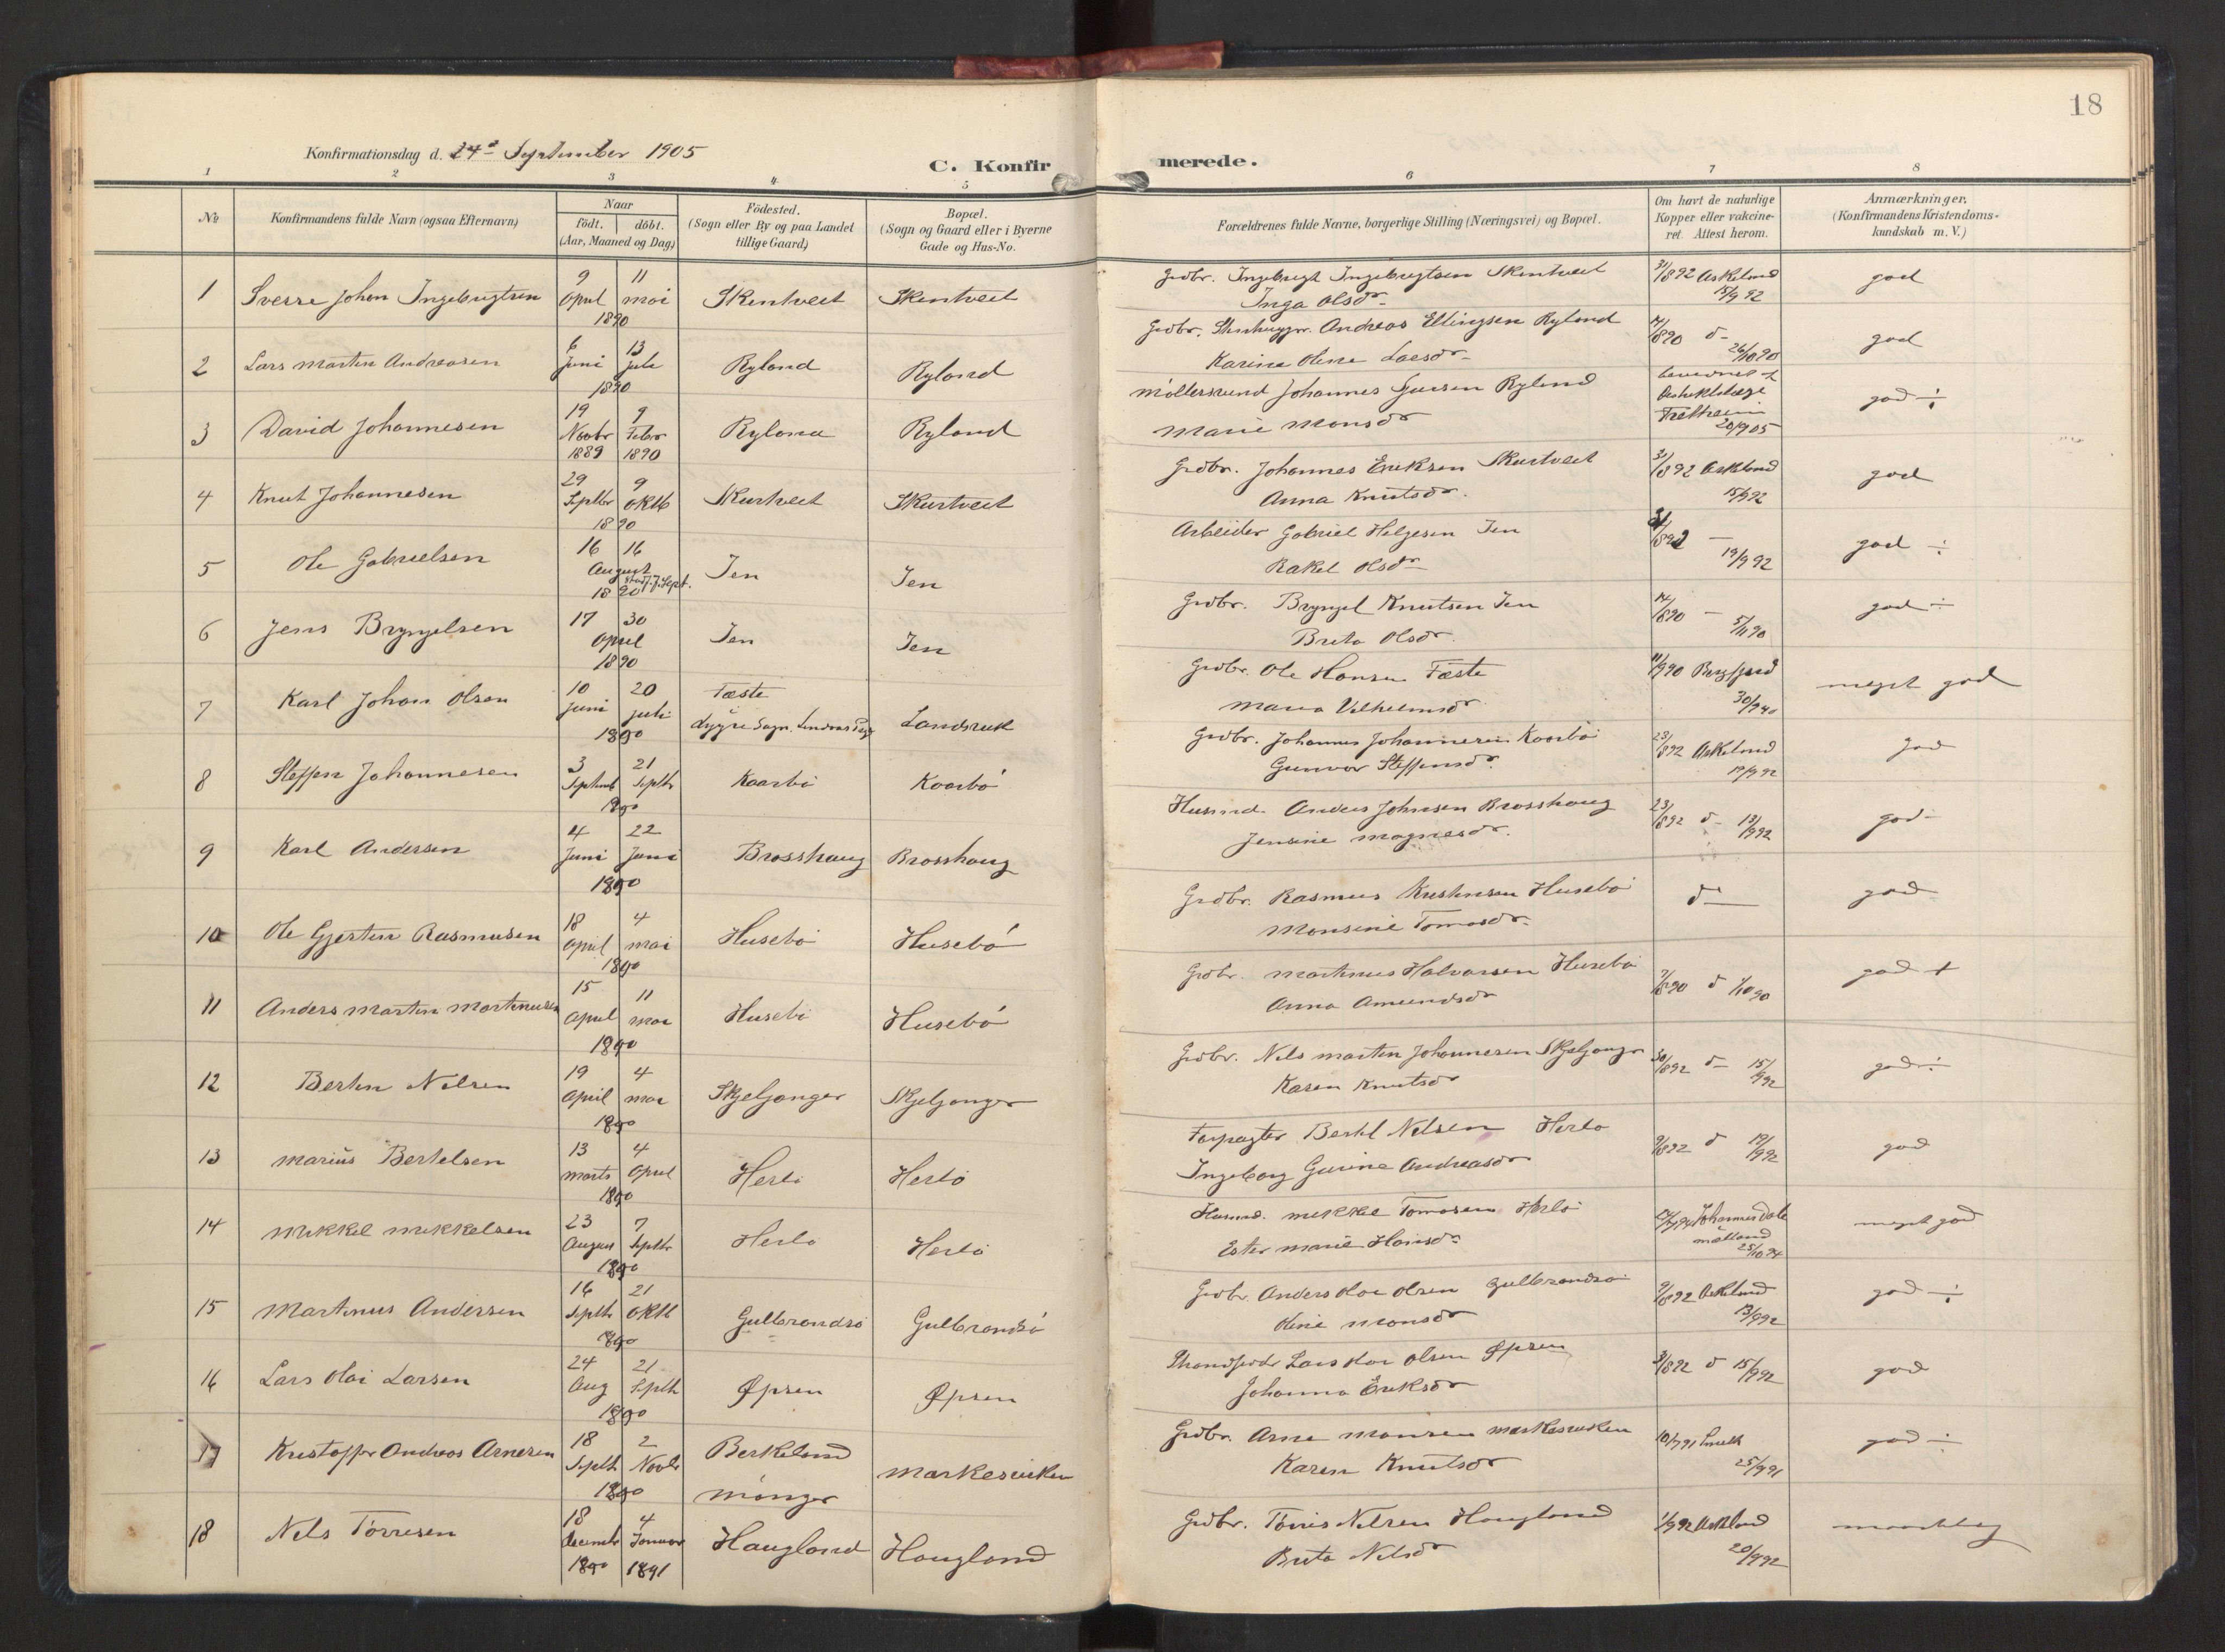 18
Konfirmationsdag d. 24de September 1905
C. Konfirmerede.
1 2 3 4 5 6 7 8
No
Konfirmandens fulde Navn (ogsaa Efternavn)
Naar
födt. döbt.
(Aar, Maaned og Dag)
Födested.
(Sogn eller By og paa Landet
tillige Gaard)
Bopæl.
(Sogn og Gaard eller i Byerne
Gade og Hus-No.
Forældrenes fulde Navne, borgerlige Stilling (Næringsvei) og Bopæl.
Om havt de naturlige
Kopper eller vakcine-
ret. Attest herom.
Anmærkninger.
(Konfirmandens Kristendoms-
kundskab m. V.)
1 Sverre Johan Ingebrigtsen 9 April 11 mai 1890 Skurtveit Skurtveit Grdbr. Ingebrigt Ingebrigtsen Skurtveit
Inga Olsdr 31/8 92 Askeland 15/9 92 god
2 Lars Martin Andreasen 6 Juni 13 Juli 1890 Ryland Ryland Grdbr. Andreas Ellingsen Ryland
Karine Oline Larsdr 26/10 90 god
3 David Johannesen 19 Novbr 1889 9 Febr 1890 Ryland Ryland Johannes Ryland
Marie Monsdr 20/9 05 god ÷
4 Knut Johannesen 29 Septbr 9 Oktb 1890 Skurtveit Skurtveit Grdbr. Johannes Eriksen Skurtveit
Anna Knutsdr. 31/8 92 Askeland 15/9 92 god
5 Ole Gabrielsen 16 16 August 1890 Ien Ien Arbeider Gabriel Helgesen Ien
Rakel Olsdr 19/9 92 god ÷
6 Jens Bryngelsen 17 30 April 1890 Ien Ien Grdbr. Bryngel Knutsen Ien
Brita Olsdr. 14/8 90 — 5/11 90 god ÷
7 Karl Johan Olsen 10 Juni 20 juli 1890 Fæste
Lygre Sogn Landsvik Grdbr. Ole Hansen Fæste
Maria Vilhelmsdr 11/9 90 meget god
8 Steffen Johannesen 3 Septemb 21 Septbr 1890 Kaarbö Kaarbö Grdbr. Johannes Johannesen Kaarbö
Gunvor Steffensdr. 23/8 92 Askeland 19/9 92 god
9 Karl Andersen 4 Juni 22 Juni 1890 Brosshaug Brosshaug Husmd. Anders Johnsen Brosshaug
Jensine Magnesdr. 23/8 92 d 13/9 92 god
10 Ole Gjertin Rasmusen 18 April 4 mai 1890 Husebö Husebö Grdbr. Rasmus Kristensen Husebö
Monsine Tomasdr. d— god
11 Anders Martin Martinusen 15 April 11 mai 1890 Husebö Husebö Grdbr. Martinus Halvorsen Husebö
Anna Amundsdr d god +
12 Bertin Nilsen 19 April 4 mai 1890 Skjeljanger Skjeljanger Grdbr. Nils Martin Johannesen Skjeljanger
Karen Knutsdr 30/8 92 d 15/9 92 god ÷
13 Marius Bertelsen 13 Marts 4 April 1890 Herlö Herlö Forpagter Bertel Nilsen Herlö
Ingeborg Gurine Andreasdr 9/8 92 d 19/9 92 god
14 Mikkel Mikkelsen 23 August 7 Septbr 1890 Herlö Herlö Husmd. Mikkel Tomasen Herlö
Ester Marie Hansdr Johannes Dale 25/10 94 meget god
15 Martinus Andersen 16 Septb 21 Oktb 1890 Gulbrandsö Gulbrandsö Grdbr. Anders Olai Olsen Gulbrandsö
Oline Monsdr 9/8 92 Askeland 13/9 92 god ÷
16 Lars Olai Larsen 24 Aug 21 Septb 1890 Øpsen Øpsen Strandsidr Lars Olai Olsen Øpsen
Johanna Eriksdr 31/8 92 d 15/9 92 god
17 Kristoffer Andreas Arnesen 18 Septb 2 Novbr 1890 Berkeland
Manger Markesviken Grdbr. Arne Monsen Markesviken
Karen Knutsdr 10/7 91 25/9 91 god ÷
18 Nils Törresen 18 Decembr 1890 4 Januar 1891 Haugland Haugland Grdbr. Törris Nilsen Haugland
Brita Nilsdr 1/9 92 Askeland 20/9 92 maadelig